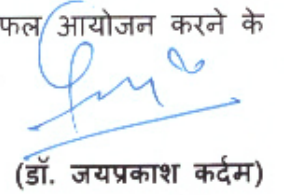 फल आयोजन करने के
(डॉ. जयप्रकाश कर्दम)